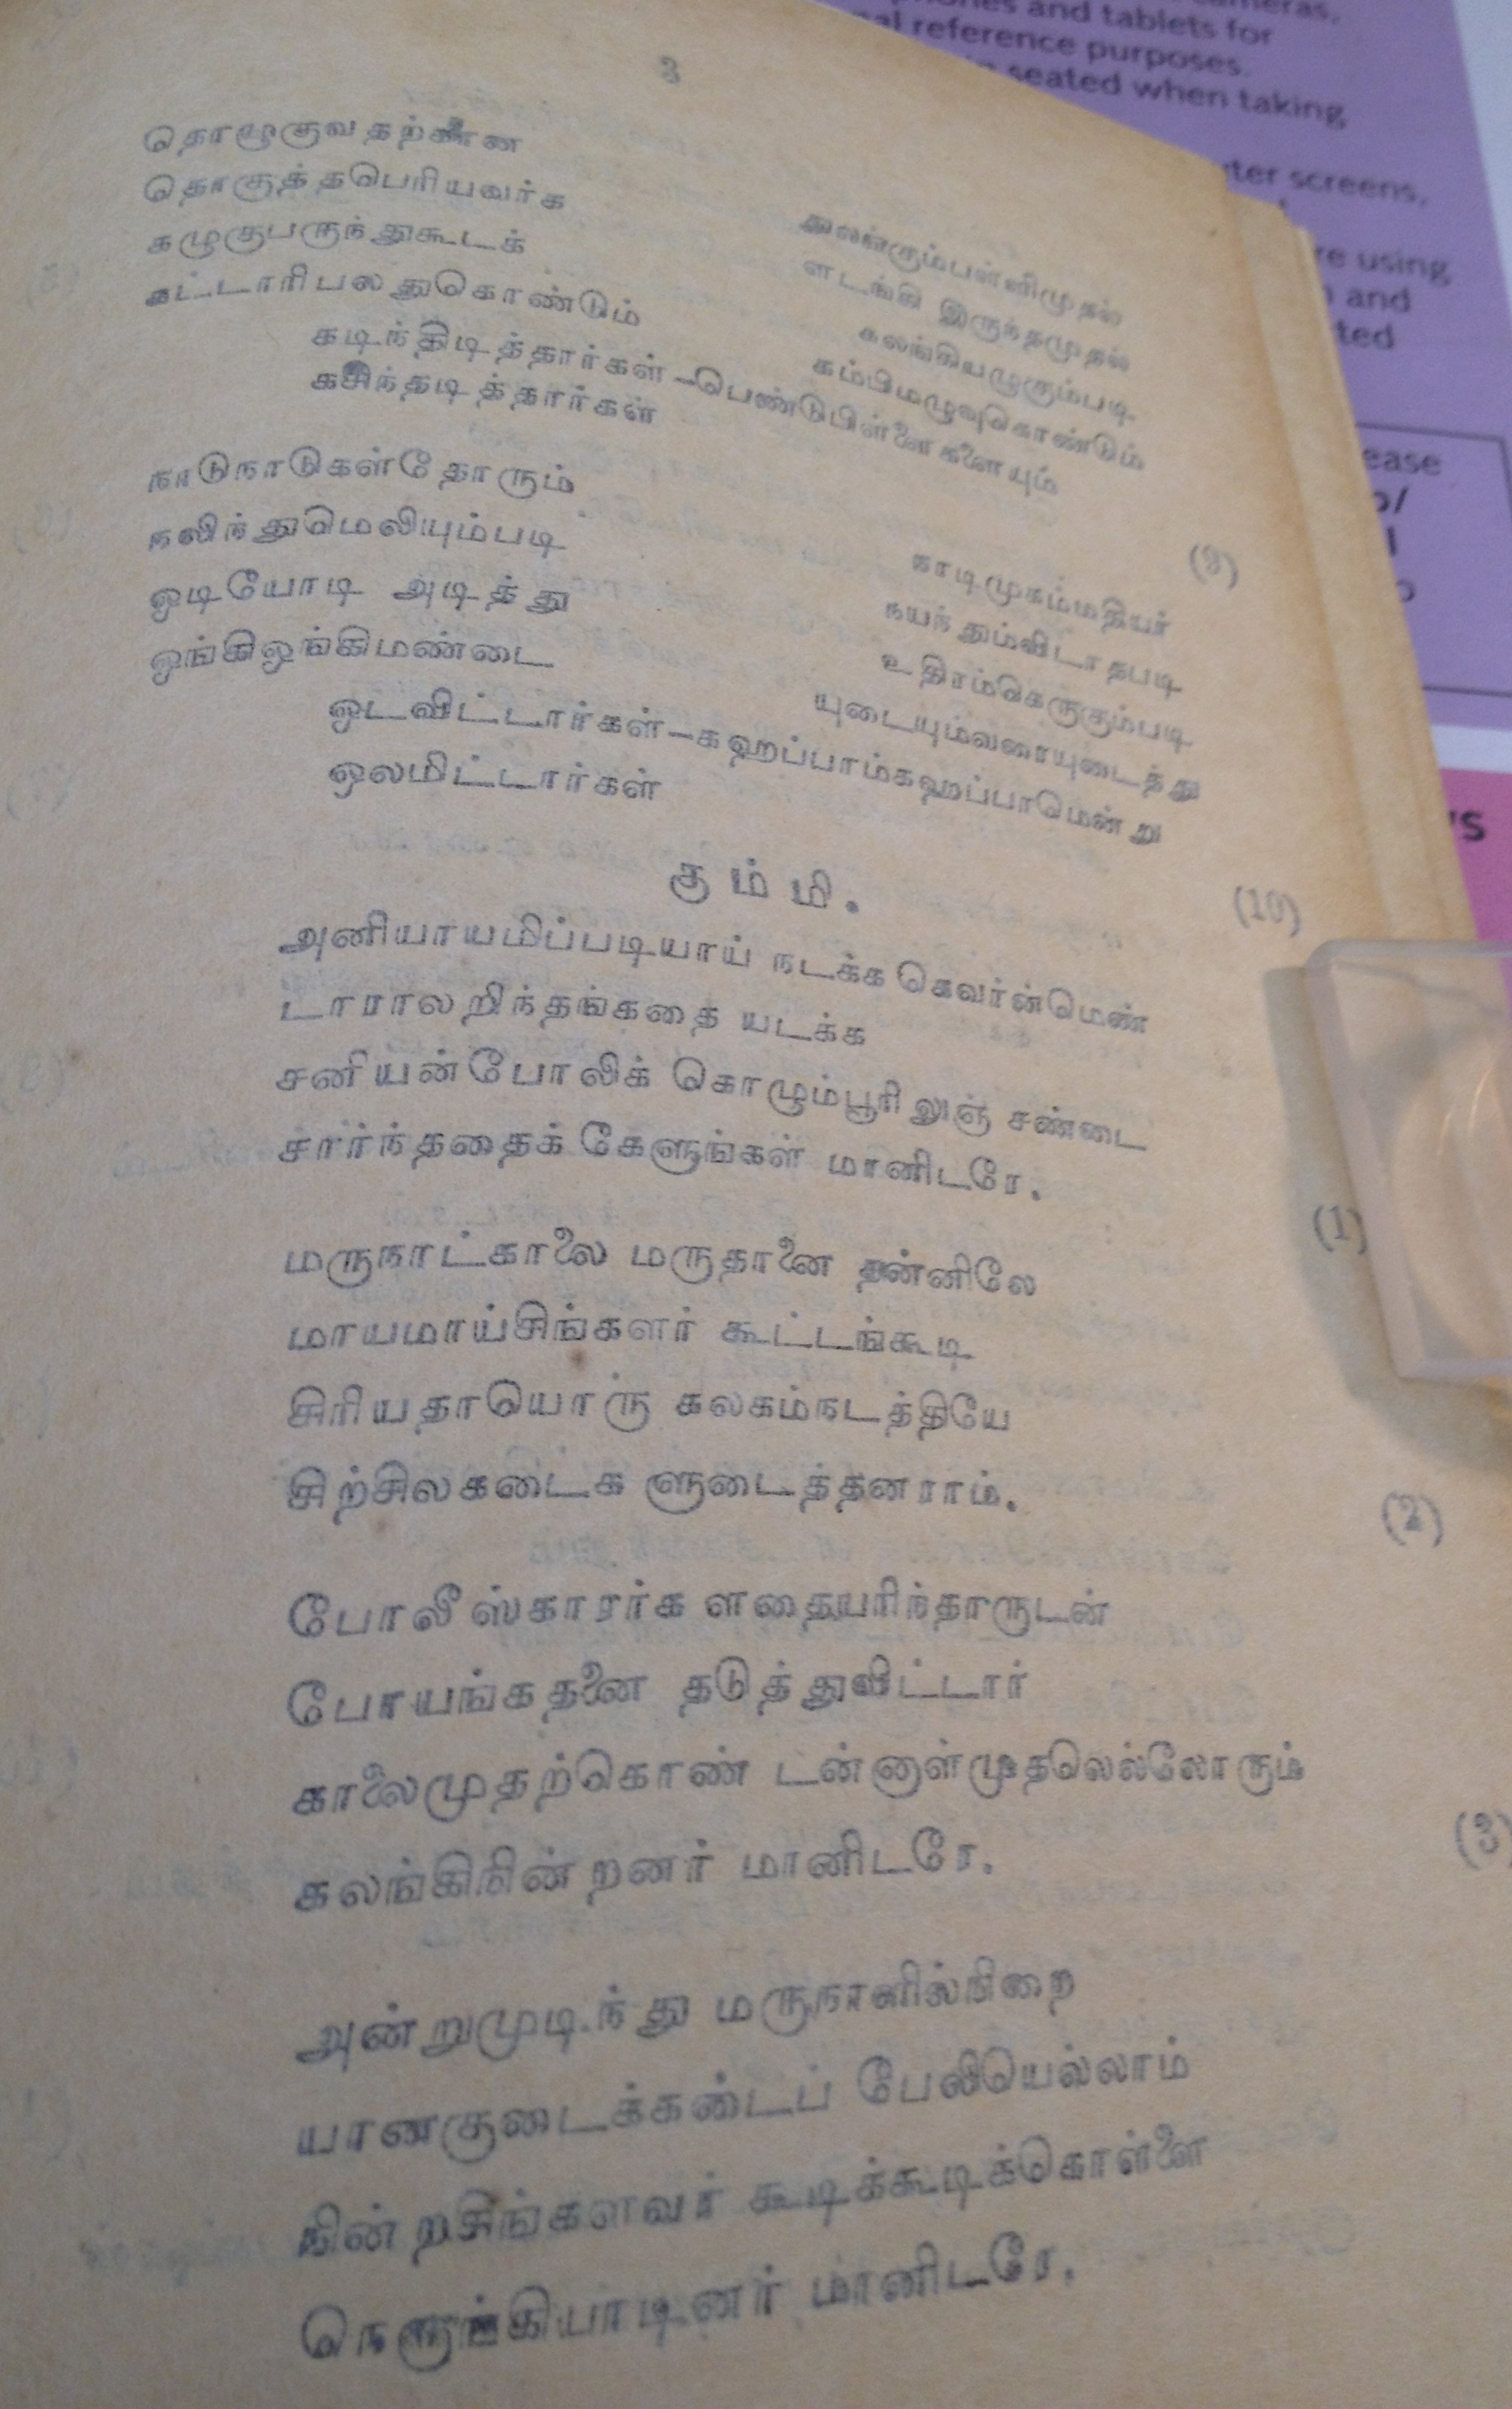 3
தொழுகுவதற்கான துலங்கும்பள்ளிமுதல்
தொகுத்தபெரியவர்க ளடங்கி இருந்தமுதல்
கழுகுபருந்துகூடக் கலங்கியழுகும்படி
கட்டாரிபலதுகொண்டும் கம்பிமழுவுகொண்டும்
கடிந்திடித்தார்கள்—பெண்டுபிள்ளைகளையும்
கசிந்தடித்தார்கள்
(9)
நாடுநாடுகள்தோரும் காடிமுகம்மதியர்
நலிந்துமெலியும்படி நயந்தும்விடாதபடி
ஓடியோடி அடித்து உதிரம்பெருகும்படி
ஓங்கிஓங்கிமண்டை யுடையும்வரையுடைத்து
ஓடவிட்டார்கள்—கஹப்பாம்கஹப்பாமென்று
ஓலமிட்டார்கள்
(10)
கும்மி.
அனியாயமிப்படியாய் நடக்க கெவர்ன்மெண்
டாராலறிந்தங்கதை யடக்க
சனியன்போலிக் கொழும்பூரிலுஞ் சண்டை
சார்ந்ததைக் கேளுங்கள் மானிடரே.
(1)
மருநாட்காலை மருதானை தன்னிலே
மாயமாய்சிங்களர் கூட்டங்கூடி
சிரியதாயொரு கலகம்நடத்தியே
சிற்சிலகடைக ளுடைத்தனராம்.
(2)
போலீஸ்காரர்க ளதையரிந்தாருடன்
போயங்கதனை தடுத்துவிட்டார்
காலைமுதற்கொண் டன்னாள்முதலெல்லோரும்
கலங்கிநின்றனர் மானிடரே.
(3)
அன்றுமுடிந்து மருநாளில்நிறை
யானகுடைக்கண்டப் பேலியெல்லாம்
நின்றசிங்களவர் கூடிக்கூடிக்கொள்ளை
நெருங்கியாடினர் மானிடரே.
phones and tablets for
reference purposes.
seated when taking
screens,
using
and